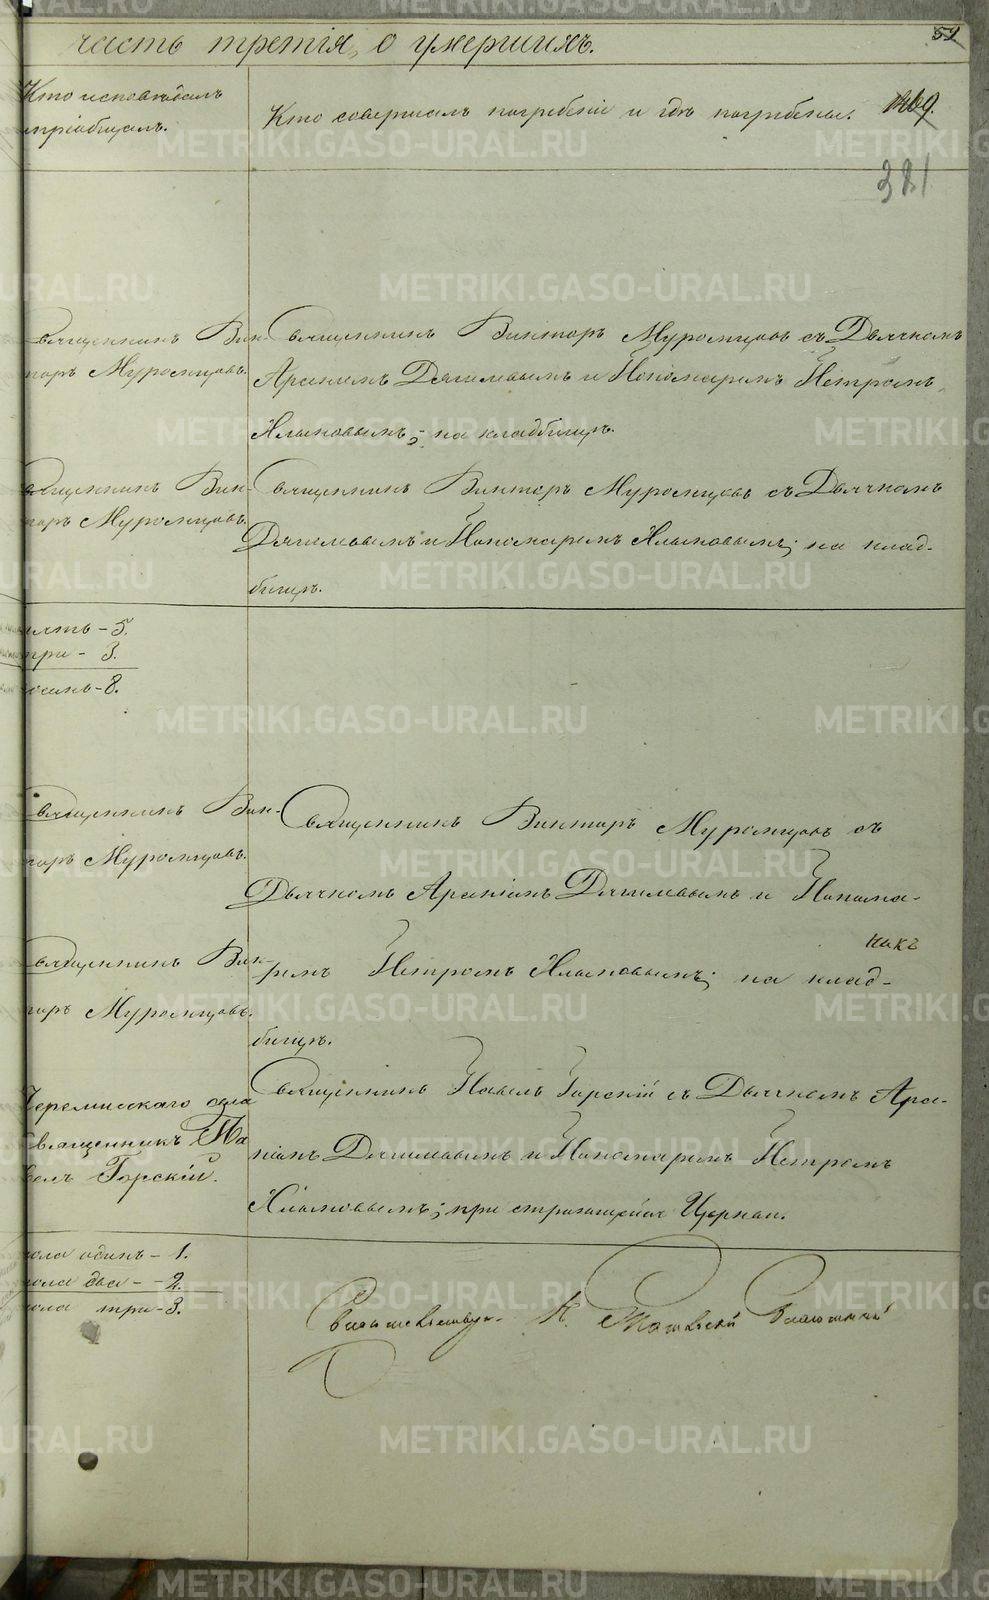 часть третія, о умершихъ.
51
Кто исповѣдалъ
и пріобщалъ.
Кто совершалъ погребеніе и гдѣ погребены.
1269.
381
Священникъ Вик-
торъ Муромцовъ.
Священникъ Викторъ Муромцовъ съ Дьячкомъ
Арсеніемъ Дягилевымъ и Пономаремъ Петромъ
Клыковымъ; на кладбищѣ.
Священникъ Вик-
торъ Муромцовъ.
Священникъ Викторъ Муромцовъ съ Дьячкомъ
Дягилевымъ и Пономаремъ Клыковымъ; на клад-
бищѣ.
пять - 5.
три - 3.
осемь - 8.
Священникъ Вик-
торъ Муромцовъ.
Священникъ Викторъ Муромцовъ съ
Дьячкомъ Арсеніемъ Дягилевымъ и Понома-
Священникъ Вик-
торъ Муромцовъ.
ремъ Петромъ Клыковымъ; на клад-
бищѣ.
Черемисскаго села
Священникъ Па
велъ Горскій.
Священникъ Павелъ Горскій съ Дьячкомъ Арсе-
ніемъ Дягилевымъ и Пономаремъ Петромъ
Клыковымъ; при строющейся Церкви.
пола одинъ - 1.
пола два - 2.
пола три - 3.
METRIKI.GASO-URAL.RU